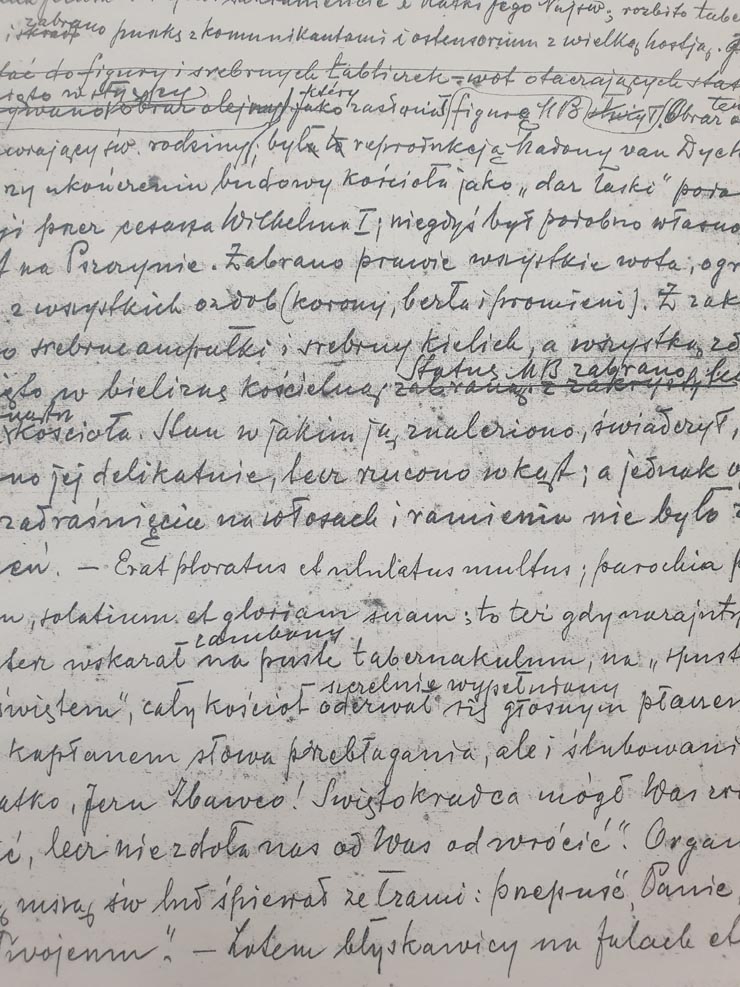 Najśw; rozbito
zabrano
i skradł puszkę z komunikantami i ostensorium z wielką hostją.
do figury i srebrnych tabliczek-wot otaczających
który
obraz olejny jako zasłonił figurę MB służył. Obraz
św. rodzinę, była to reprodukcją Madony van Dyck
ukończeniu budowy kościoła jako „dar łaski"
przez cesarza Wilhelma I; niegdyś był podobno własno
na Pszczynie. Zabrano prawie wszystkie wota, ogr
z wszystkich ozdób (korony, berła i promieni). Z zak
srebrne ampułki i srebrny kielich, a wszystką
Statuę MB zabrano
w bieliznę kościelną, zabraną z zakrystji
kościoła. Stan w jakim ją znaleziono, świadczył,
no jej delikatnie, lecz rzucono w kąt; a jednak
zadraśnięcia na włosach i ramieniu nie było
eń. — Erat ploratus et ululatus multus; parochia
m, solatium et gloriam suam; to też gdy nazajutrz
z ambony
wskazał na puste tabernakulum, na „spust
szczelnie wypełniony
świętem", cały kościół oderwał się głośnym płaczem
kapłanem słowa przebłagania, ale i ślubowani
atko, Jezu Zbawco! Świętokradca mógł Was
ć, lecz nie zdoła nas od Was odwrócić". Organ
mszą św lud śpiewał ze łzami: przepuść, Panie,
Twojemu". — Lotem błyskawicy na falach et